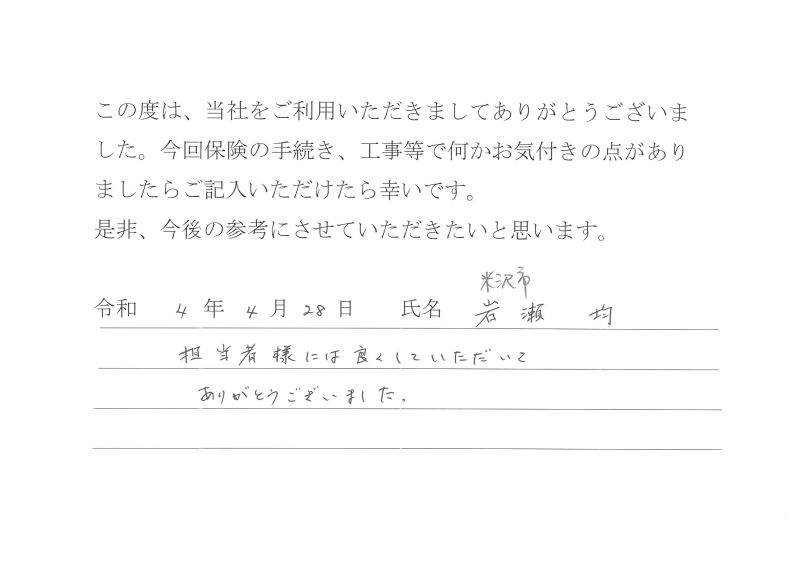 この度は、当社をご利用いただきましてありがとうございま
した。今回保険の手続き、工事等で何かお気付きの点があり
ましたらご記入いただけたら幸いです。
是非、今後の参考にさせていただきたいと思います。
米沢市
令和 4 年 4 月 28 日 氏名 岩瀬 均
担当者様には良くしていただいて
ありがとうございました。